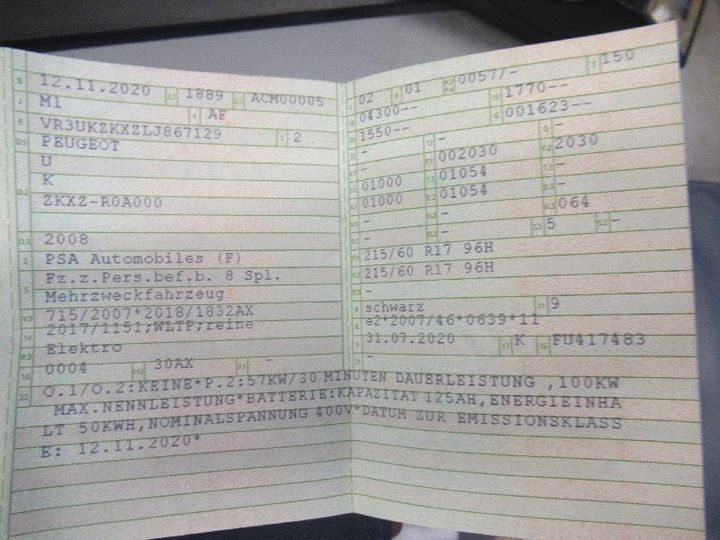 B 12.11.2020 2.1 1889 2.2 ACM00005
J M1 4 AF
E VR3UKZKXZLJ867129 3 2
D.1 PEUGEOT
U
D.2 K
ZKXZ-R0A000
D.3 2008
2 PSA Automobiles (F)
5 Fz.z.Pers.bef.b. 8 Spl.
Mehrzweckfahrzeug
V.9 715/2007*2018/1832AX
14 2017/1151;WLTP;reine
P.3 Elektro
10 0004 14.1 30AX P.1 -
L 02 9 01 P.2 P.4 0057/- T 150
18 04300-- 19 1770--
20 1550-- G 001623--
12 - 13 - Q -
V.7 - F.1 002030 F.2 2030
7.1 01000 7.2 01054 7.3 -
8.1 01000 8.2 01054 8.3 -
U.1 - U.2 - U.3 064
O.1 - O.2 - S.1 5 S.2 -
15.1 215/60 R17 96H
15.2 215/60 R17 96H
15.3 -
R schwarz 11 9
K e2*2007/46*0639*11
6 31.07.2020 17 K 16 FU417483
21 -
22 O.1/O.2:KEINE*P.2:57KW/30 MINUTEN DAUERLEISTUNG ,100KW
MAX.NENNLEISTUNG*BATTERIE:KAPAZITAT 125AH,ENERGIEINHA
LT 50KWH,NOMINALSPANNUNG 400V*DATUM ZUR EMISSIONSKLASS
E: 12.11.2020*